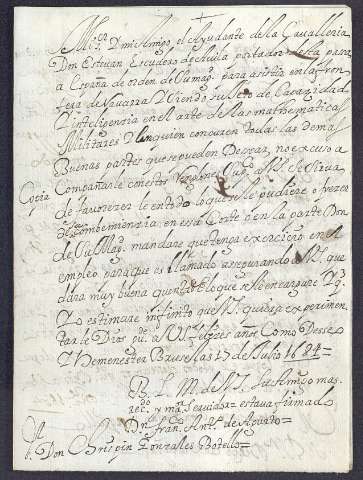 +
M.s.or D. mi Amigo, el Ayudante de la Cavalleria
Don Estevan Escudero de Avila portador desta passa
a España de orden de Su mag.d para asistir en la fron
tera de Navarra Y siendo sujeto de Capazidad
Y inteligencia en el arte de las mathematicas
Militares Y en quien concurren todas las demas
Buenas partes que se pueden Desear, no escuso a
Copia
Compañarle con estos renglones Sup.do a V.S. se sirva
de favorezer le en todo lo que se le pudiere ofrezer
de su combeniencia, en essa Corte ó en la parte Don
de Su Mag.d mandare que tenga exercicio en el
empleo para que es llamado assegurando a V.S. que
dara muy buena quenta de lo que se le encargare Y q.e
Yo estimare infinito que V.S. quiera experimen
tarle Dios gu.e a V.S. felizes años Como Desseo
Y he menester Bruselas 15 de Julio 1684=
B. L. M. de V.S. Su Amigo mas
rec.do y ma.r Servidor= estava firmado
D.n fran.co Ant.o de Agurto=
S.r
D. Don Chrispin Gonzales Botello=